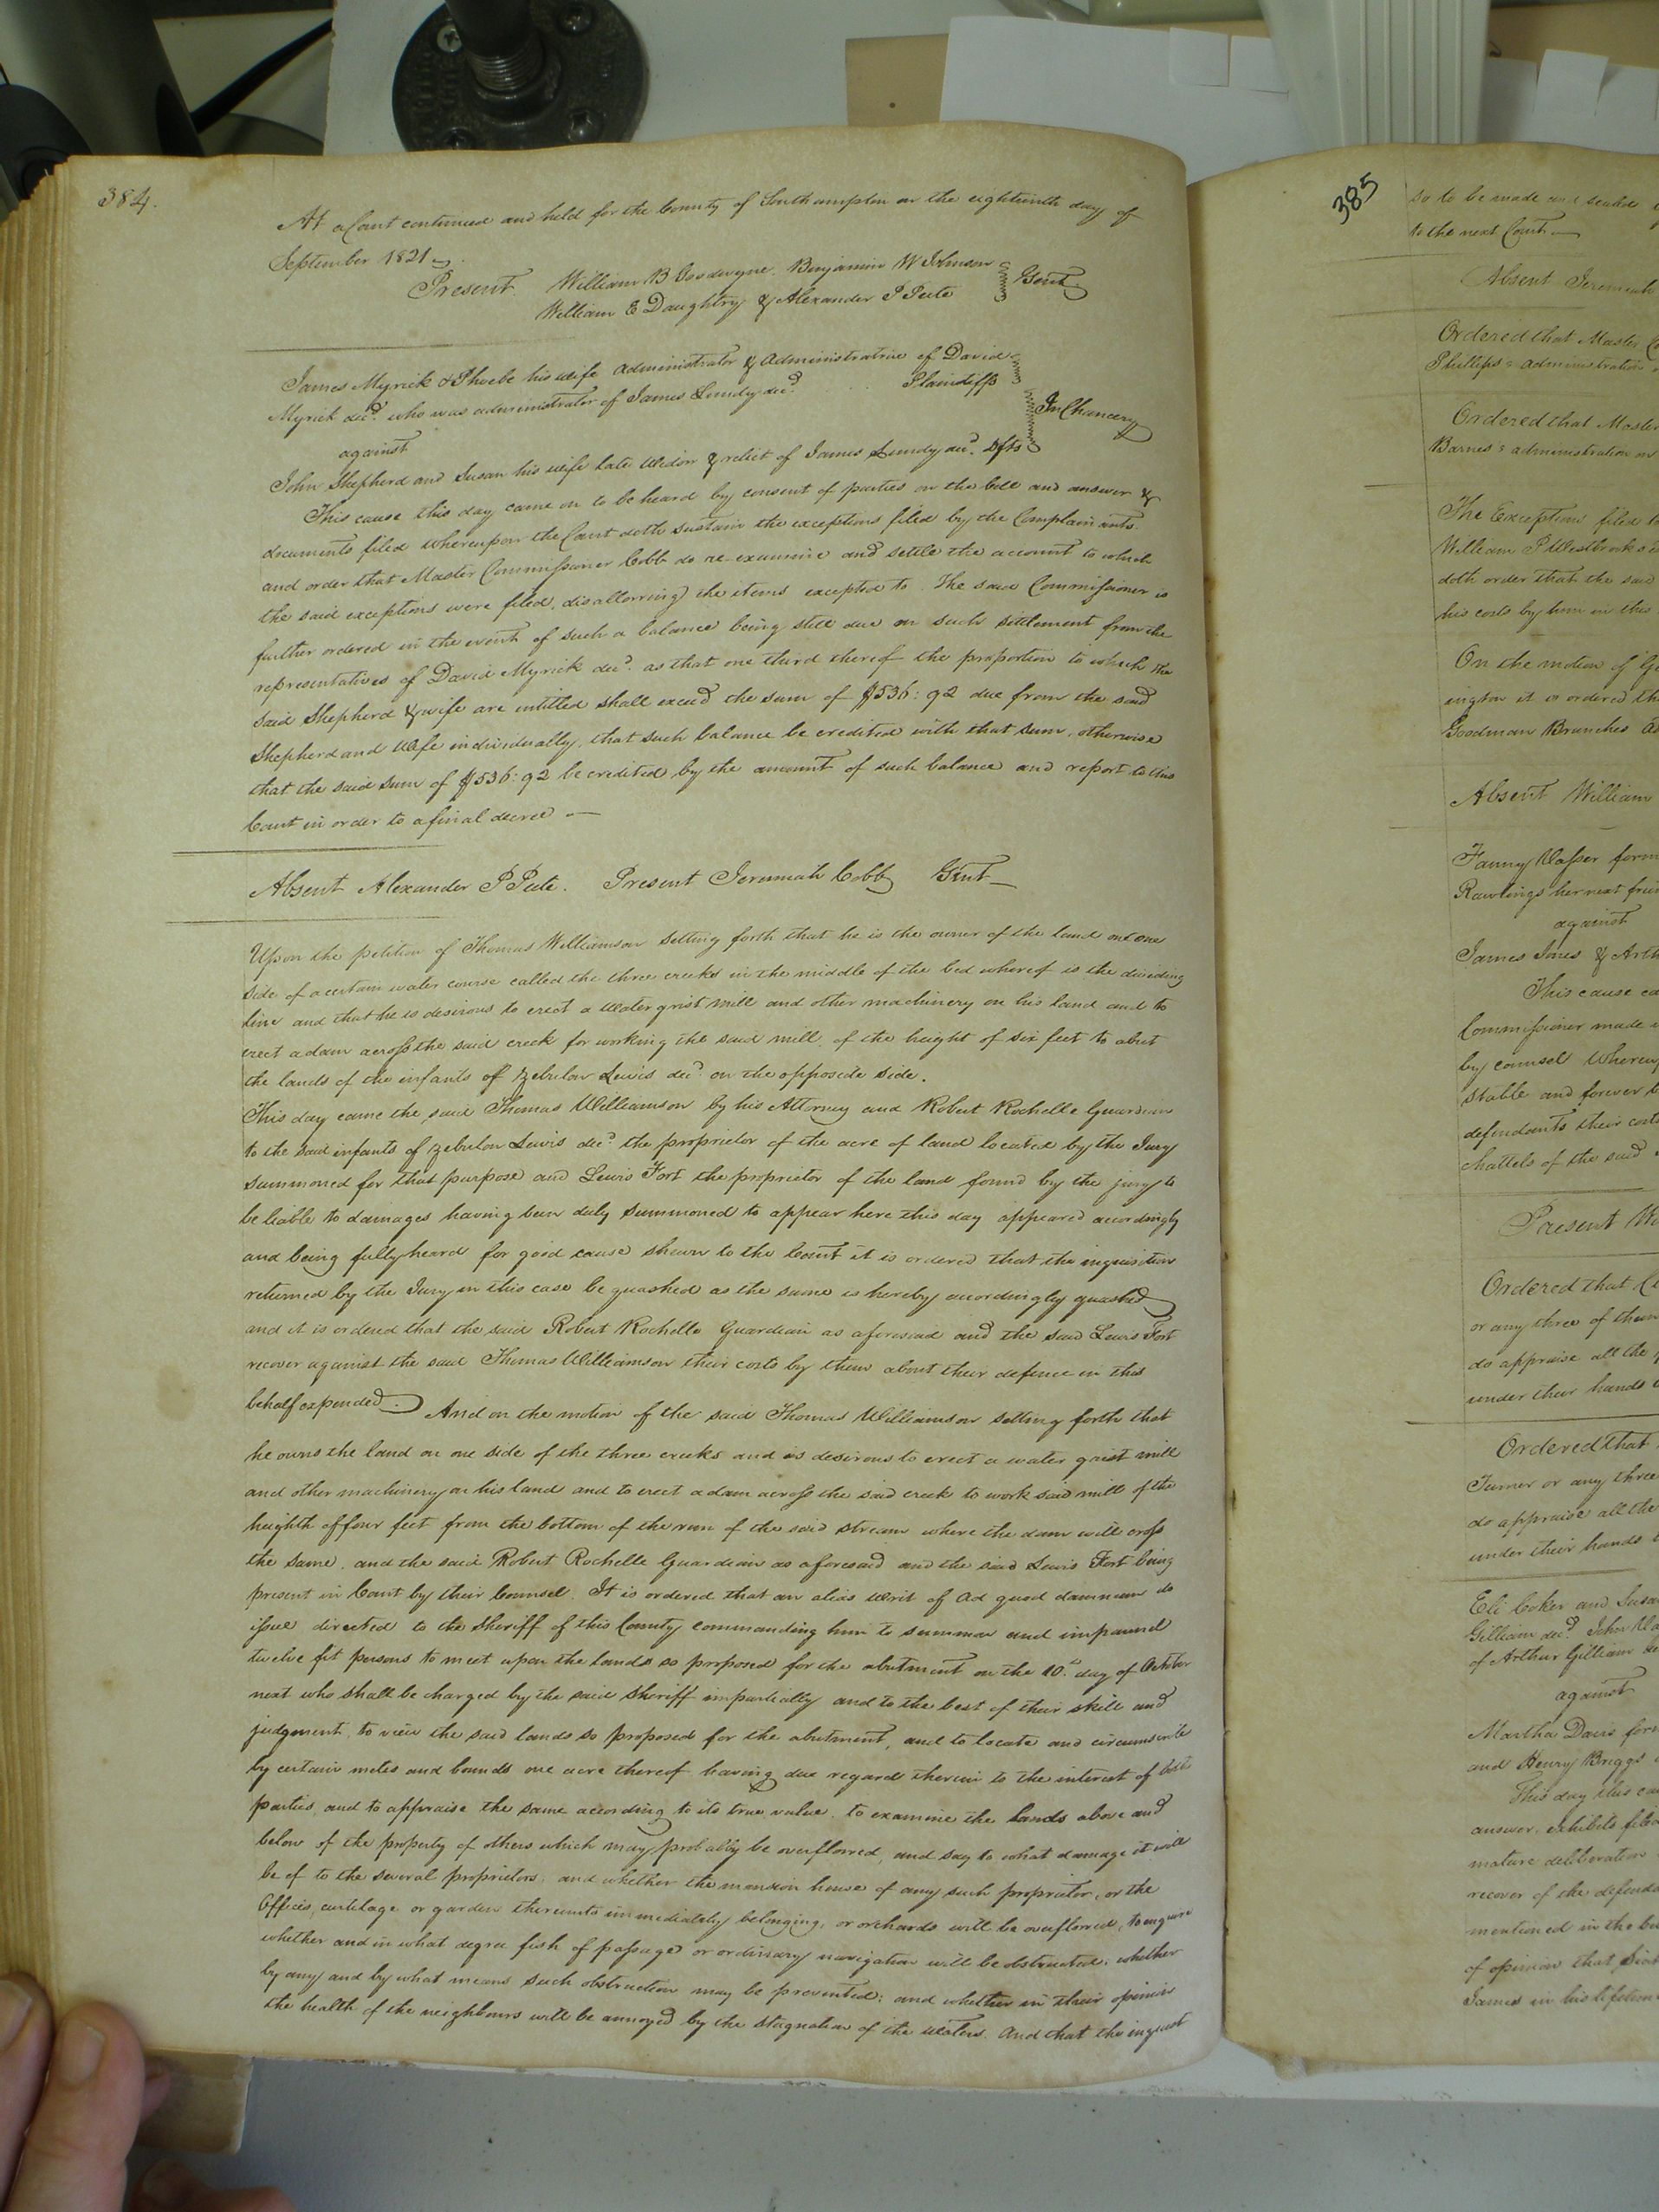 384.
At a Court continued and held for the County of Southampton on the eighteenth day of
September 1821
Present William B Goodwyne. Benjamin W Johnson
William E Daughtry & Alexander P Peete } Gent
James Myrick & Phoebe his wife administrator & administratrix of David
Myrick decd. who was administrator of James Lundy decd. Plaintiffs
against } In Chancery
John Shepherd and Susan his wife late widow & relict of James Lundy decd. Dfts
This cause this day came on to be heard by consent of parties on the bill and answer &
documents filed whereupon the Court doth sustain the exceptions filed by the Complainants.
and order that Master Commissioner Cobb do re examine and settle the account to which
the said exceptions were filed, disallowing the items excepted to. The said Commissioner is
further ordered in the event of such a balance being still due on such settlement from the
representatives of David Myrick decd. as that one third thereof the proportion to which the
said Shepherd & wife are intitled shall exceed the sum of $536:92 due from the said
Shepherd and Wife individually, that such balance be credited with that sum, otherwise
that the said sum of $536:92 be credited by the amount of such balance and report to this
Court in order to a final decree
Absent Alexander P Peete. Present Jeremiah Cobb Gent
Upon the petition of Thomas Williamson setting forth that he is the owner of the land on one
side of a certain water course called the three creeks in the middle of the bed whereof is the dividing
line and that he is desirous to erect a water grist mill and other machinery on his land and to
erect a dam across the said creek for working the said mill. of the height of six feet to abut
the lands of the infants of Zebulon Lewis decd. on the opposide side.
This day came the said Thomas Williamson by his Attorney and Robert Rochelle Guardian
to the said infants of Zebulon Lewis decd. the proprietor of the acre of land located by the Jury
summoned for that purpose and Lewis Fort the proprietor of the land found by the jury to
be liable to damages having been duly summoned to appear here this day appeared accordingly
and being fully heard for good cause shewn to the Court it is ordered that the inquisition
returned by the Jury in this case be quashed as the same is hereby accordingly quashed
and it is ordered that the said Robert Rochelle Guardian as aforesaid and the said Lewis Fort
recover against the said Thomas Williamson their costs by them about their defence in this
behalf expended. And on the motion of the said Thomas Williamson setting forth that
he owns the land on one side of the three creeks and is desirous to erect a water grist mill
and other machinery on his land and to erect a dam across the said creek to work said mill of the
heighth of four feet from the bottom of the run of the said stream where the dam will cross
the same. and the said Robert Rochelle Guardian as aforesaid and the said Lewis Fort being
present in Court by their Counsel. It is ordered that an alias writ of ad quod damnum do
issue directed to the Sheriff of this County commanding him to summon and impannel
twelve fit persons to meet upon the lands so proposed for the abutment on the 10th day of October
next who shall be charged by the said Sheriff impartially and to the best of their skill and
judgment, to view the said lands so proposed for the abutment, and to locate and circumscribe
by certain metes and bounds one acre thereof having due regard therein to the interest of both
parties, and to appraise the same according to its true value. to examine the Lands above and
below of the property of others which may probably be overflowed, and say to what damage it will
be of to the several proprietors. and whether the mansion house of any such proprietor, or the
Offices, curtilage or garden thereunto immediately belonging, or orchards will be overflowed, to enquire
whether and in what degree fish of passage or ordinary navigation will be obstructed, whether
by any and by what means such obstruction may be prevented: and whether in their opinion
the health of the neighbours will be annoyed by the stagnation of the waters. And that the inquest
385
so to be made and sealed
to the next Court
Absent Jeremiah
Ordered that Master
Phillips's administration
Ordered that Master
Barnes's administration on
The Exceptions filed
William P Westbrooks
doth order that the said
his costs by him in this
On the motion of
ington it is ordered
Goodman Branches
Absent William
Fanny Wasser form
Rawlings her next
against
James Jones &
This cause
Commissioner made
by counsel
stable and forever
defendants their costs
chattels of the said
Present
Ordered that
or any three of them
do appraise all the
under their hands
Ordered that
Turner or any three
do appraise all the
under their hands
Eli Coker and
Gilliam decd. John
of Arthur Gilliam
against
Martha Davis
and Henry Briggs
This day this
answer. Exhibits filed
mature deliberation
recover of the
mentioned in the
of opinion that
James in his lifetime